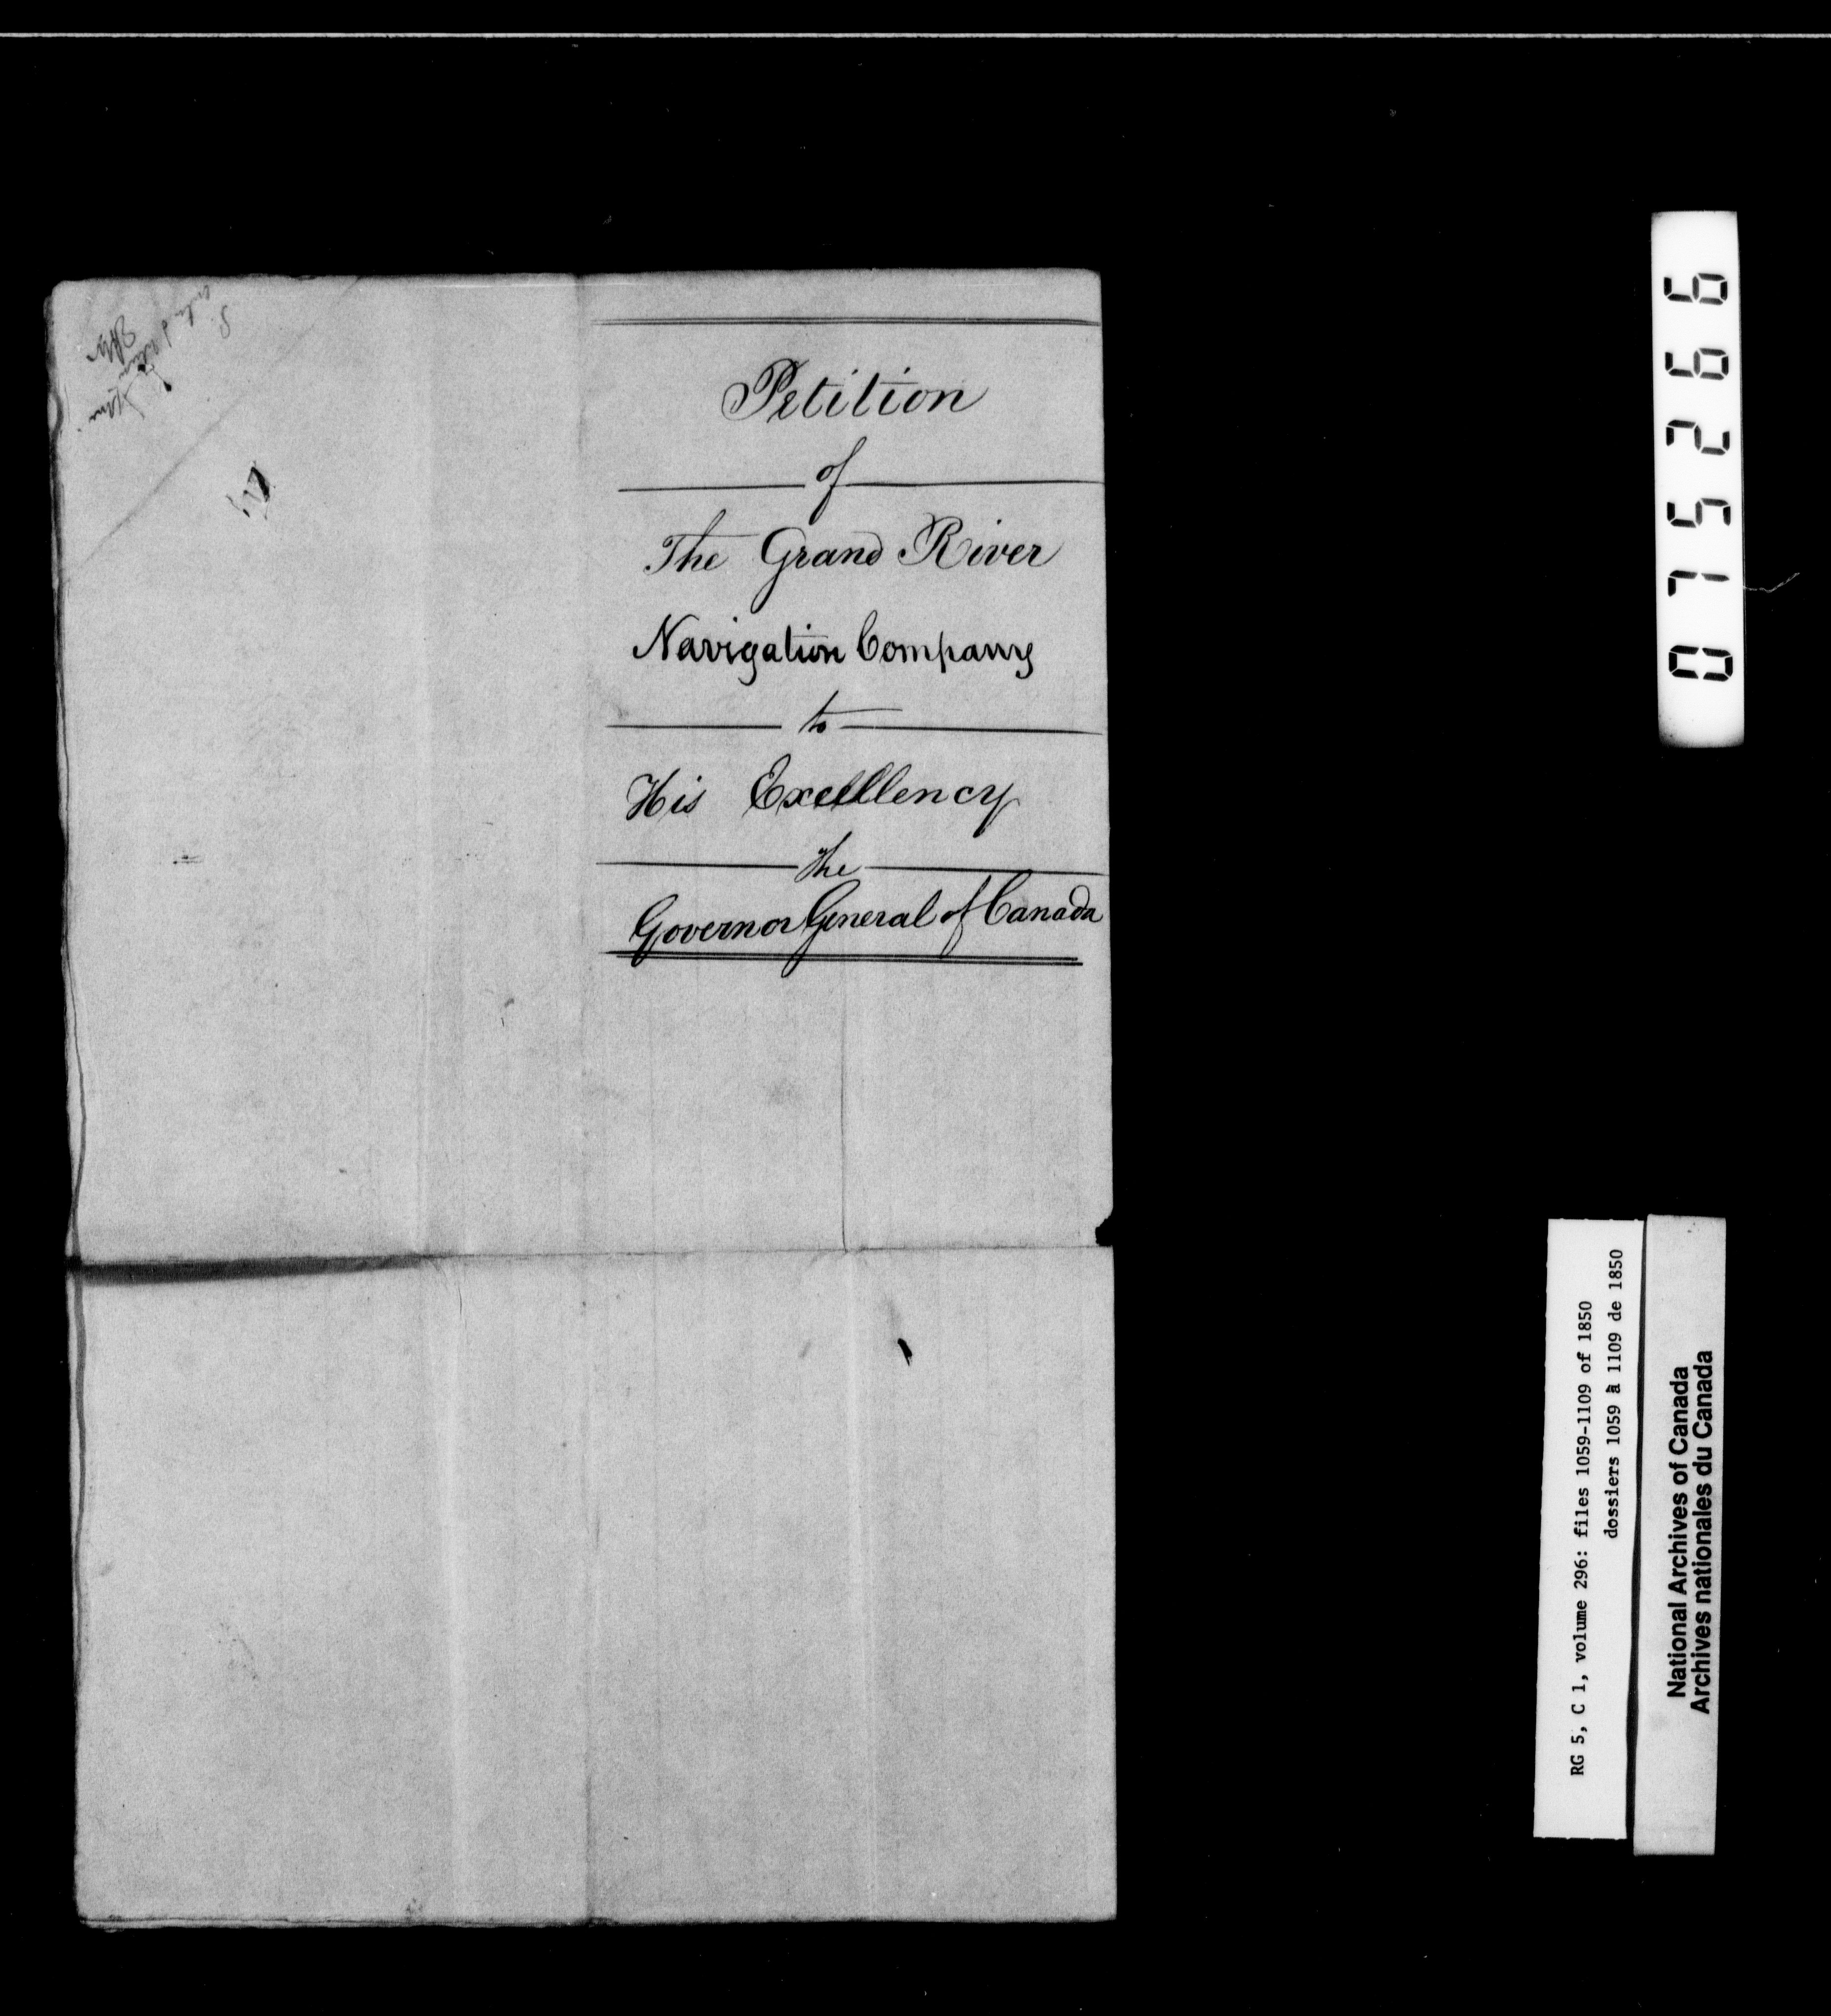 Petition
of
The Grand River
Navigation Company
to
His Excellency
the
Governor General of Canada
075266
RG 5, C 1, volume 296: files 1059-1109 of 1850
dossiers 1059 à 1109 de 1850
National Archives of Canada
Archives nationales du Canada